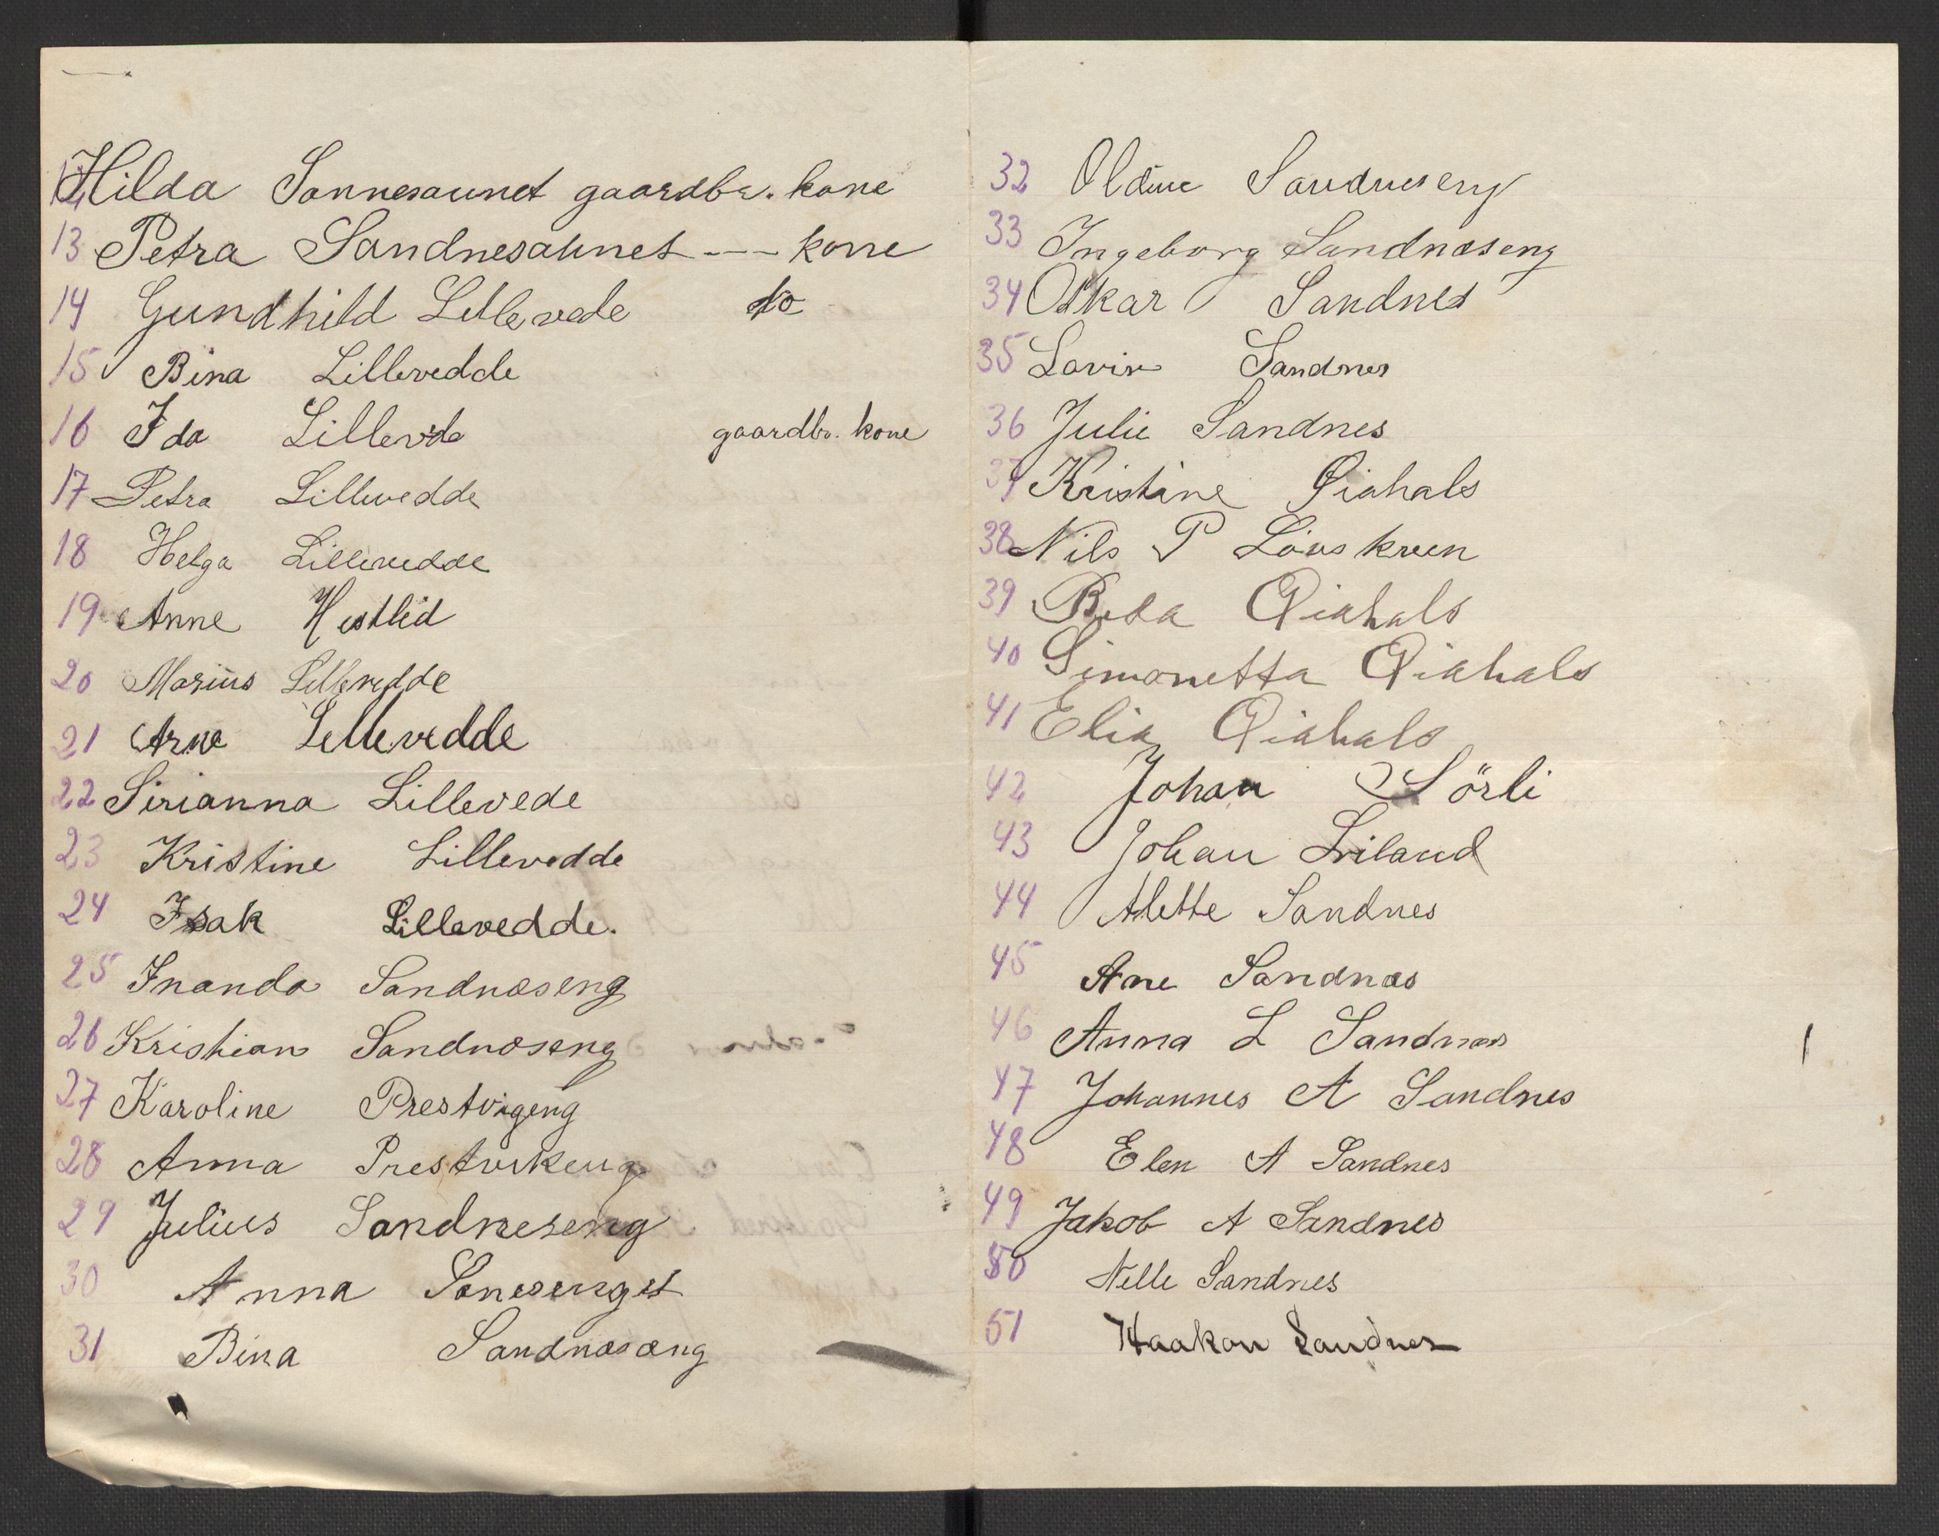 12 Hilda Sannesaunet gaardbr. kone
13 Petra Sandnesaunet --- kone
14 Gundhild Lillevede do
15 Bina Lillevedde
16 Ida Lillevede gaardbr. kone
17 Petra Lillevedde
18 Helga Lillevedde
19 Anne Hestlid
20 Marius Lillevedde
21 Arne Lillevedde
22 Sirianna Lillevede
23 Kristine Lillevedde
24 Isak Lillevedde.
25 Inanda Sandnæseng
26 Kristian Sandnæseng
27 Karoline Prestvigeng
28 Anna Prestvikeng
29 Julius Sandneseng
30 Anna Sanesenget
31 Bina Sandnæsæng
32 Oldine Sandneseng
33 Ingeborg Sandnæseng
34 Oskar Sandnes
35 Lovise Sandnes
36 Julie Sandnes
37 Kristine Qiahals
38 Nils P Lövskren
39 Qiahals
40 Simonetta Qiahals
41 Elia Qiahals
42 Johan Sörli
43 Johan
44 Alette Sandnes
45 Ane Sandnæs
46 Anna L Sandnæs
47 Johannes A Sandnes
48 Elen A Sandnes
49 Jakob A Sandnes
50 Nelle Sandnes
51 Haakon Sandnes